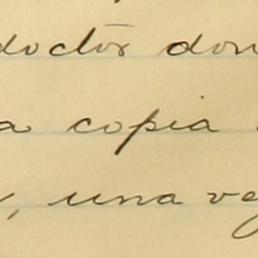 doctor don
a copia
, una vez